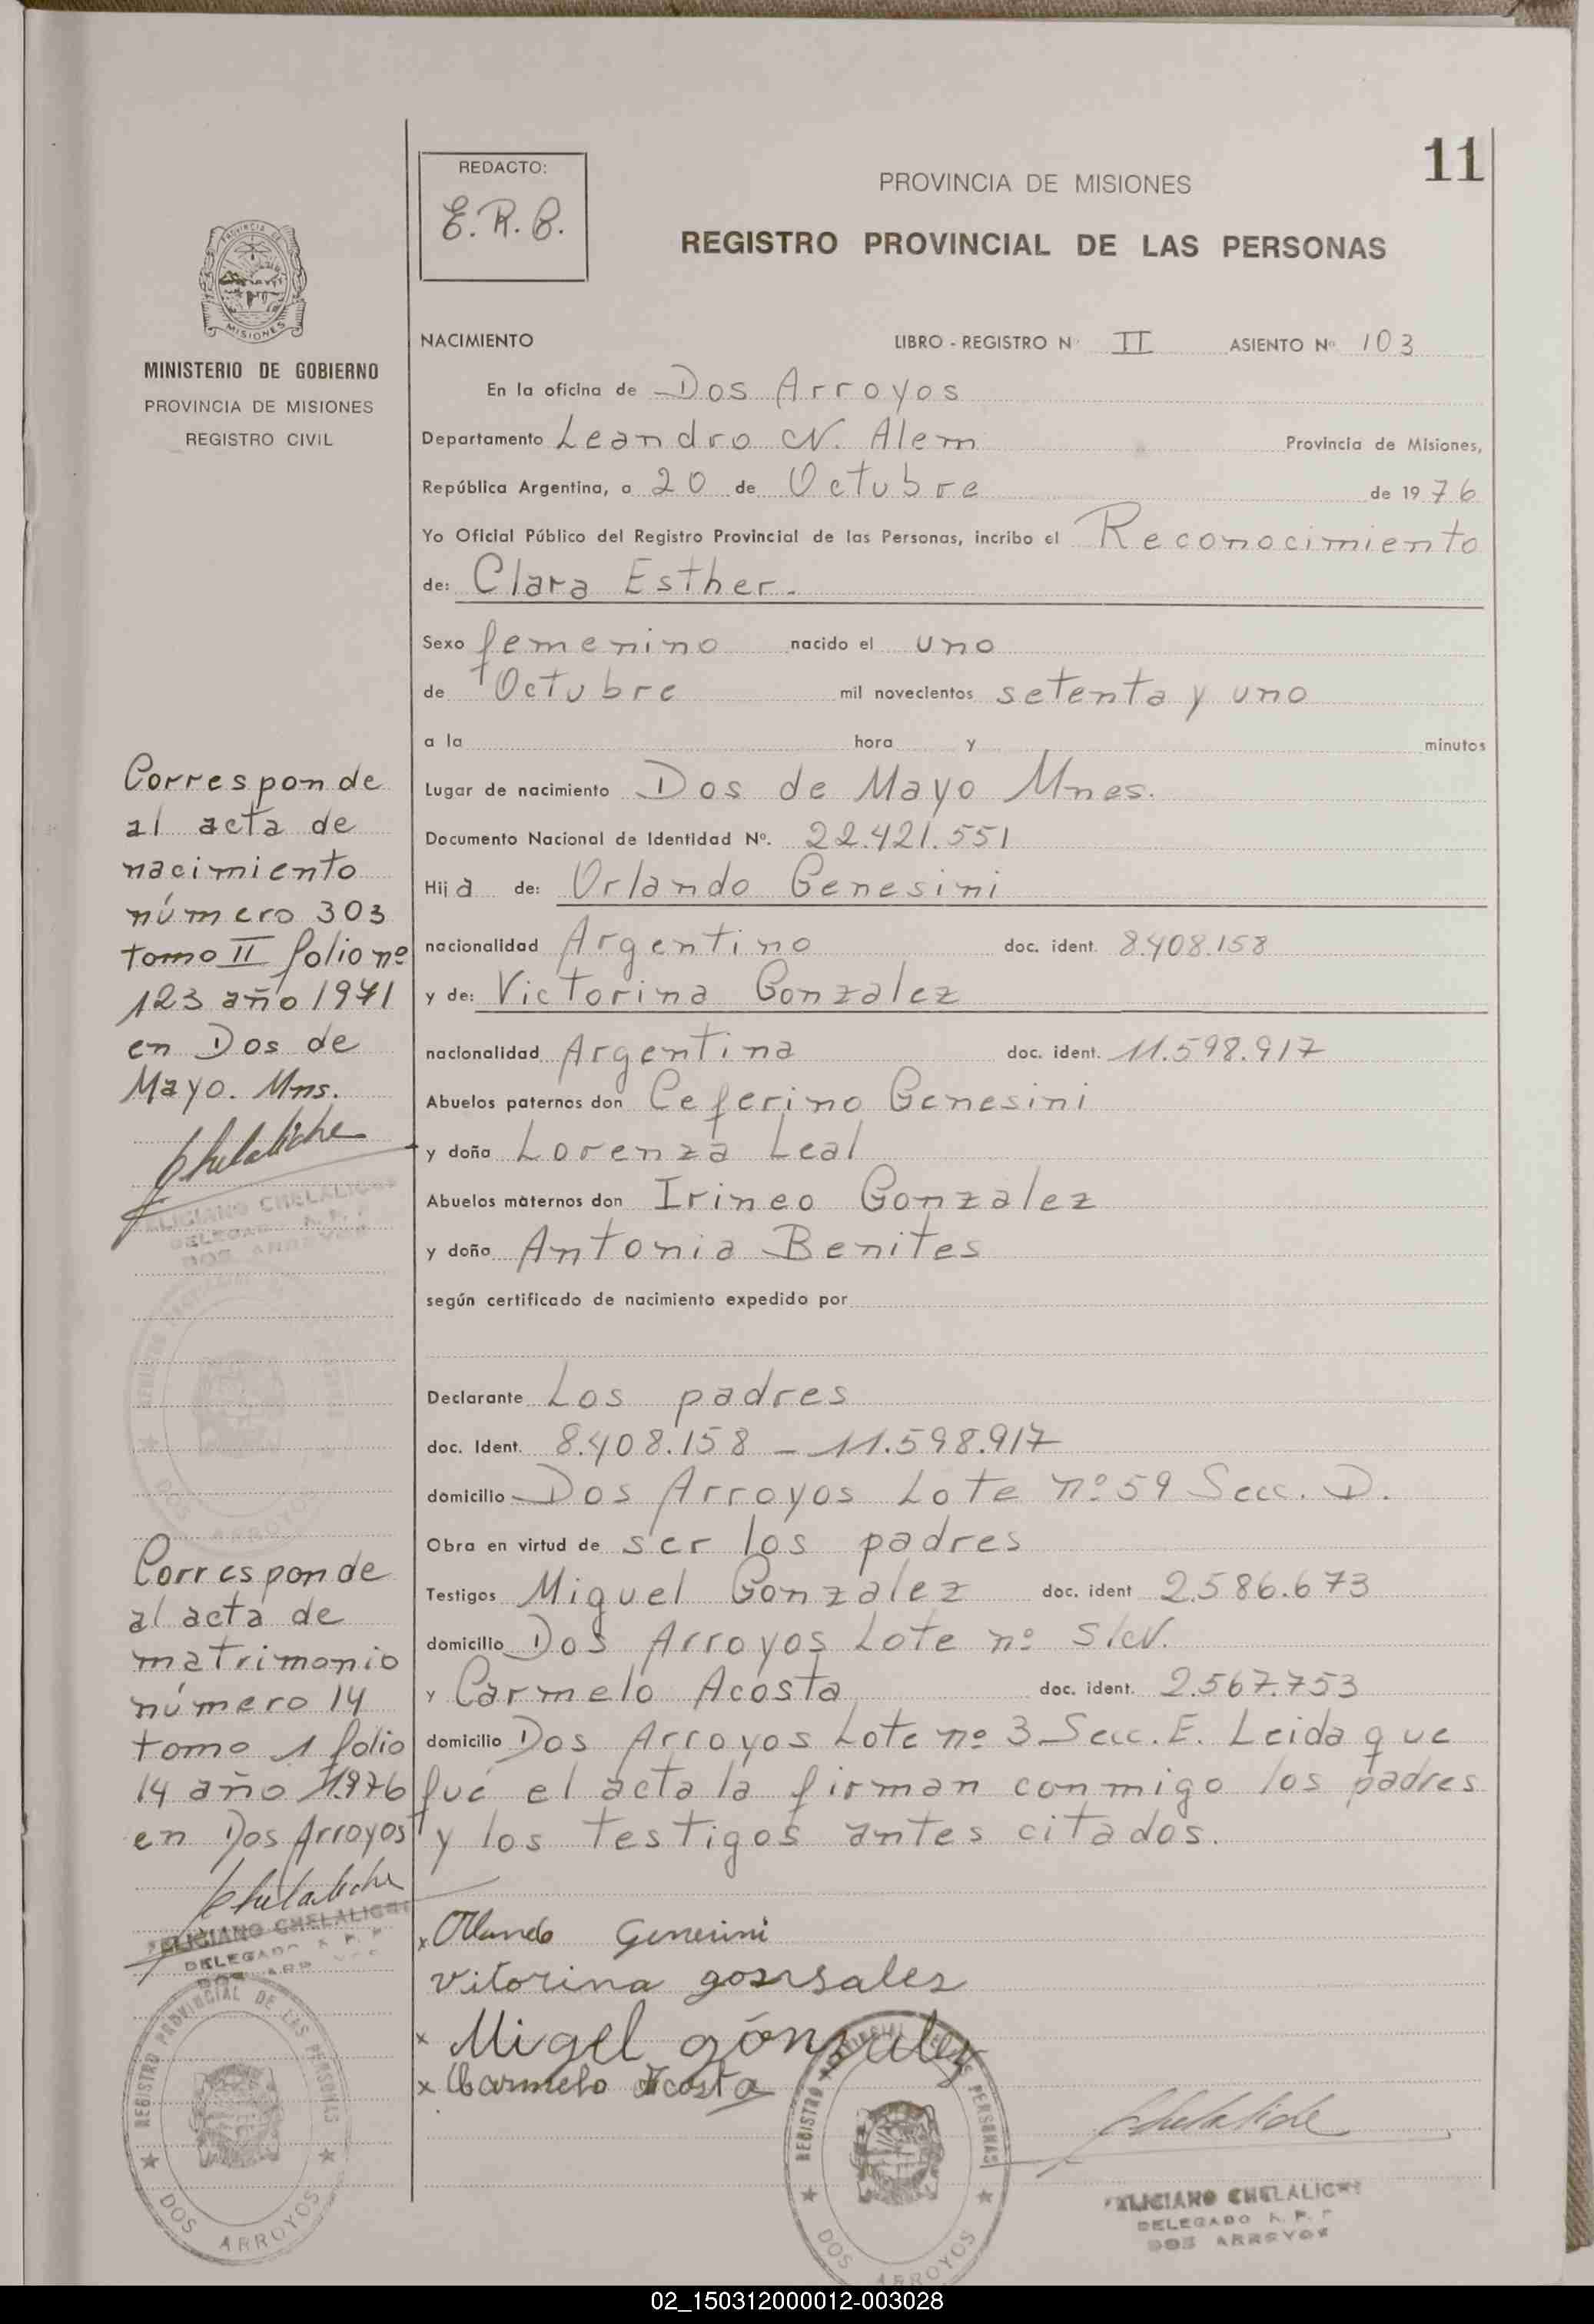 11
REDACTO:
E. R. B.
PROVINCIA DE MISIONES
REGISTRO PROVINCIAL DE LAS PERSONAS
MISIONES
MINISTERIO DE GOBIERNO
PROVINCIA DE MISIONES
REGISTRO CIVIL
NACIMIENTO LIBRO - REGISTRO Nº II ASIENTO Nº 103
En la oficina de Dos Arroyos
Departamento Leandro N. Alem Provincia de Misiones,
República Argentina, a 20 de Octubre de 1976
Yo Oficial Público del Registro Provincial de las Personas, incribo el Reconocimiento
de: Clara Esther.
Sexo femenino nacido el uno
de Octubre mil novecientos setenta y uno
a la hora y minutos
Lugar de nacimiento Dos de Mayo Mnes.
Documento Nacional de Identidad Nº. 22.421.551
Hija de: Orlando Genesini
nacionalidad Argentino doc. ident. 8.408.158
y de: Victorina Gonzalez
nacionalidad Argentina doc. ident. 11.598.917
Abuelos paternos don Ceferino Genesini
y doña Lorenza Leal
Abuelos maternos don Irineo Gonzalez
y doña Antonia Benites
según certificado de nacimiento expedido por
Declarante Los padres
doc. Ident. 8.408.158 - 11.598.917
domicilio Dos Arroyos Lote nº 59 Secc. D.
Obra en virtud de ser los padres
Testigos Miguel Gonzalez doc. ident 2.586.673
domicilio Dos Arroyos Lote nº S/N.
y Carmelo Acosta doc. ident. 2.567.753
domicilio Dos Arroyos Lote nº 3 Secc. E. Leida que
fué el acta la firman conmigo los padres
y los testigos antes citados.
Orlando Genesini
Vitorina gonsales
x Migel gónzalez
x Carmelo Acosta
Corresponde
al acta de
nacimiento
número 303
tomo II folio nº
123 año 1971
en Dos de
Mayo. Mns.
Chelaliche
FELICIANO CHELALICHE
DELEGADO R. P. P
DOS ARROYOS
DOS ARROYOS
Corresponde
al acta de
matrimonio
número 14
tomo 1 folio
14 año 1976
en Dos Arroyos
Chelaliche
FELICIANO CHELALICHE
DELEGADO R. P. P
REGISTRO PROVINCIAL DE LAS PERSONAS
DOS ARROYOS
REGISTRO PROVINCIAL DE LAS PERSONAS
DOS ARROYOS
Chelaliche
FELICIANO CHELALICHE
DELEGADO R. P. P
DOS ARROYOS
02_150312000012-003028